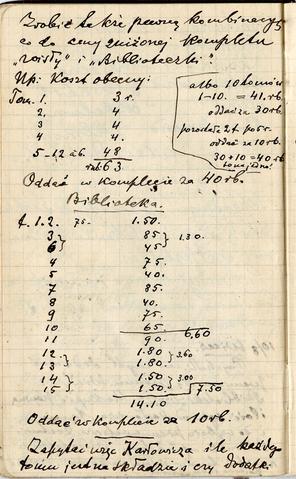 Zrobić także pewną kombinację
co do ceny zniżonej kompletu
i „Biblioteczki".
Np: Koszt obecny:
Tom. 1. 3 r.
2, 4
3, 4
4. 4.
5-12 à 6. 48
rub. 63
albo 10 tomów
1-10. = 41. rb.
oddać za 30 rb.
pozostałe 2 t po 5 r.
oddać za 10 rb.
30 + 10 = 40 rb
Oddać w komplecie za 40 rb.
Biblioteka.
t. 1. 2. 75. 1.50.
3 } 85 } 1.30.
6 } 45 }
4 75.
5 40.
7 85
8 40.
9 75.
10 65. 6.60
11 90.
12 } 1.80 } 3.60
13 } 1.80. }
14 } 1.50 } 3.00
15 } 1.50 } 7.50
14.10
Oddać w komplecie za 10 rb.
Zapytać więc Karłowicza ile każdego
tomu jest na składzie i czy